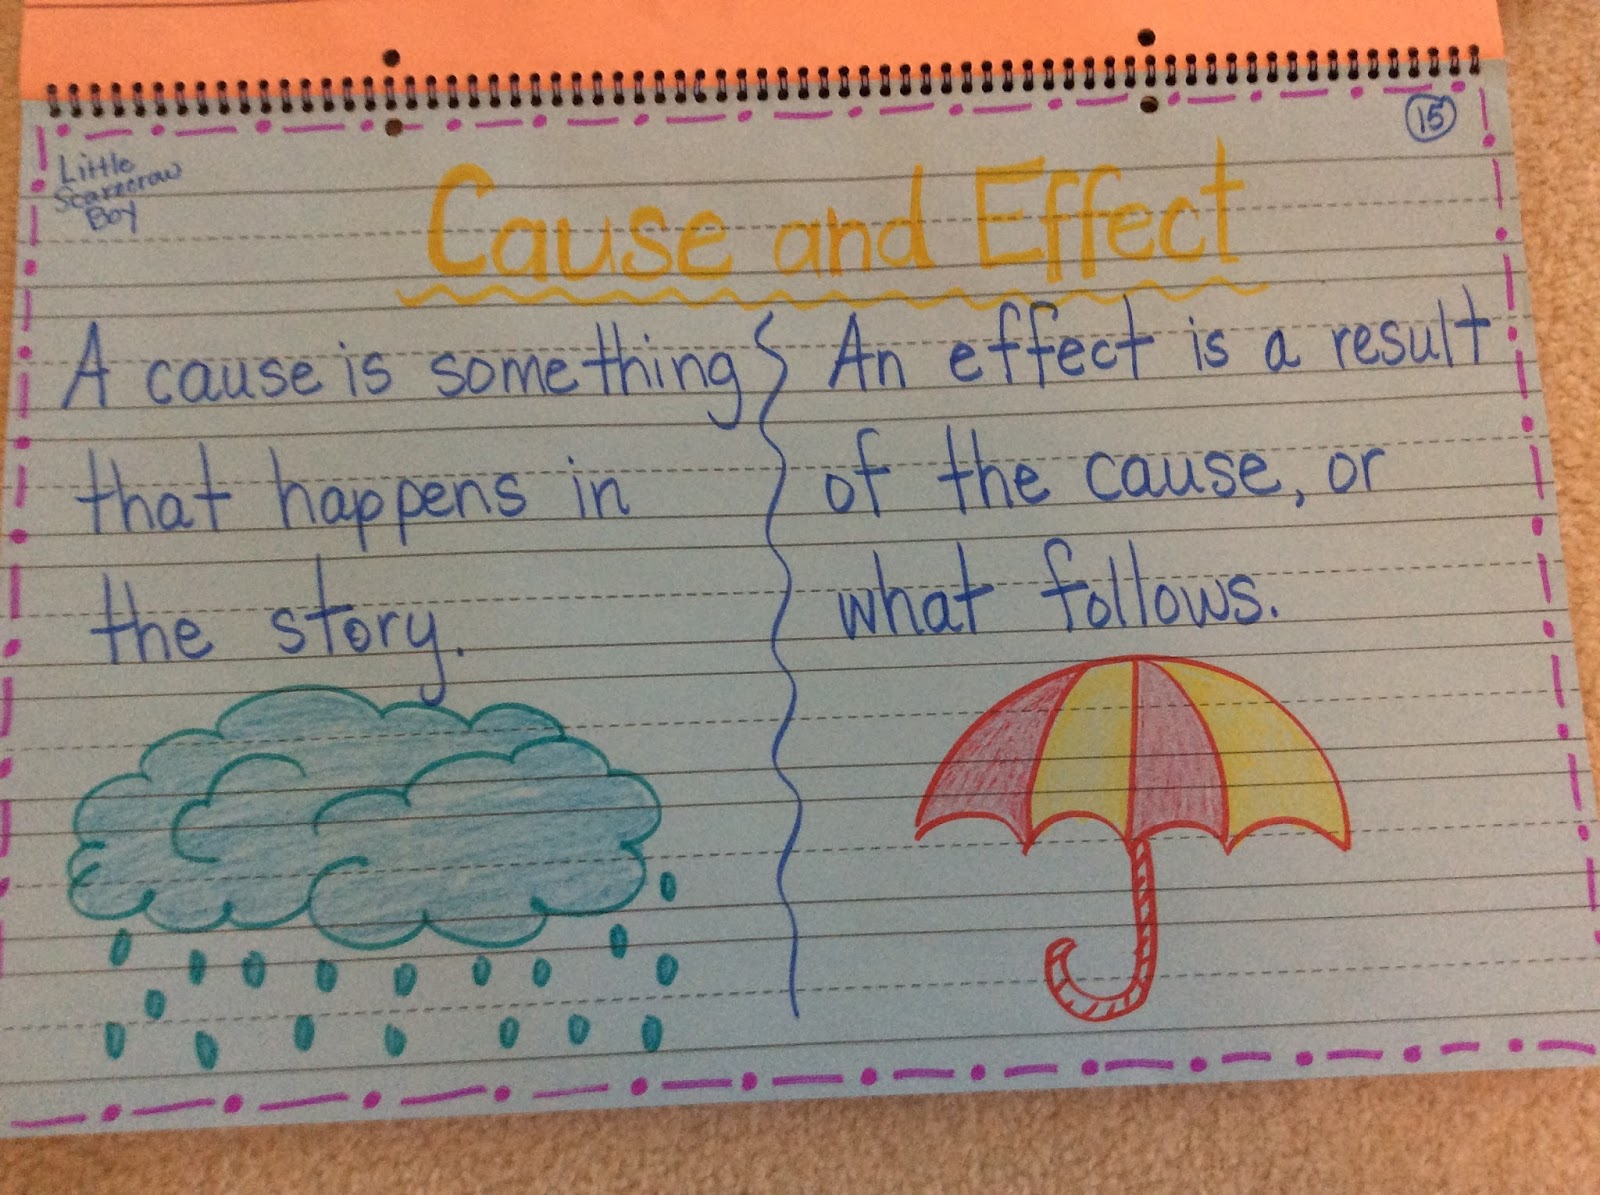 15
Little
Scarecrow
Boy
Cause and Effect
A cause is something
that happens in
the story.
An effect is a result
of the cause, or
what follows.